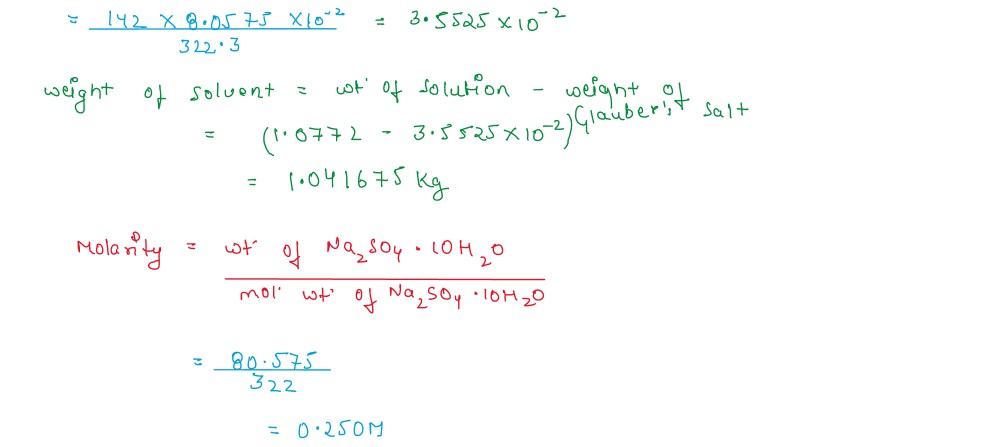 = 142 × 8.0575 × 10⁻² / 322.3 = 3.5525 × 10⁻²
weight of solvent = wt. of solution - weight of Glauber's salt
= (1.0772 - 3.5525 × 10⁻²)
= 1.041675 Kg
Molarity = wt. of Na₂SO₄ · 10H₂O / mol. wt. of Na₂SO₄ · 10H₂O
= 80.575 / 322
= 0.250M